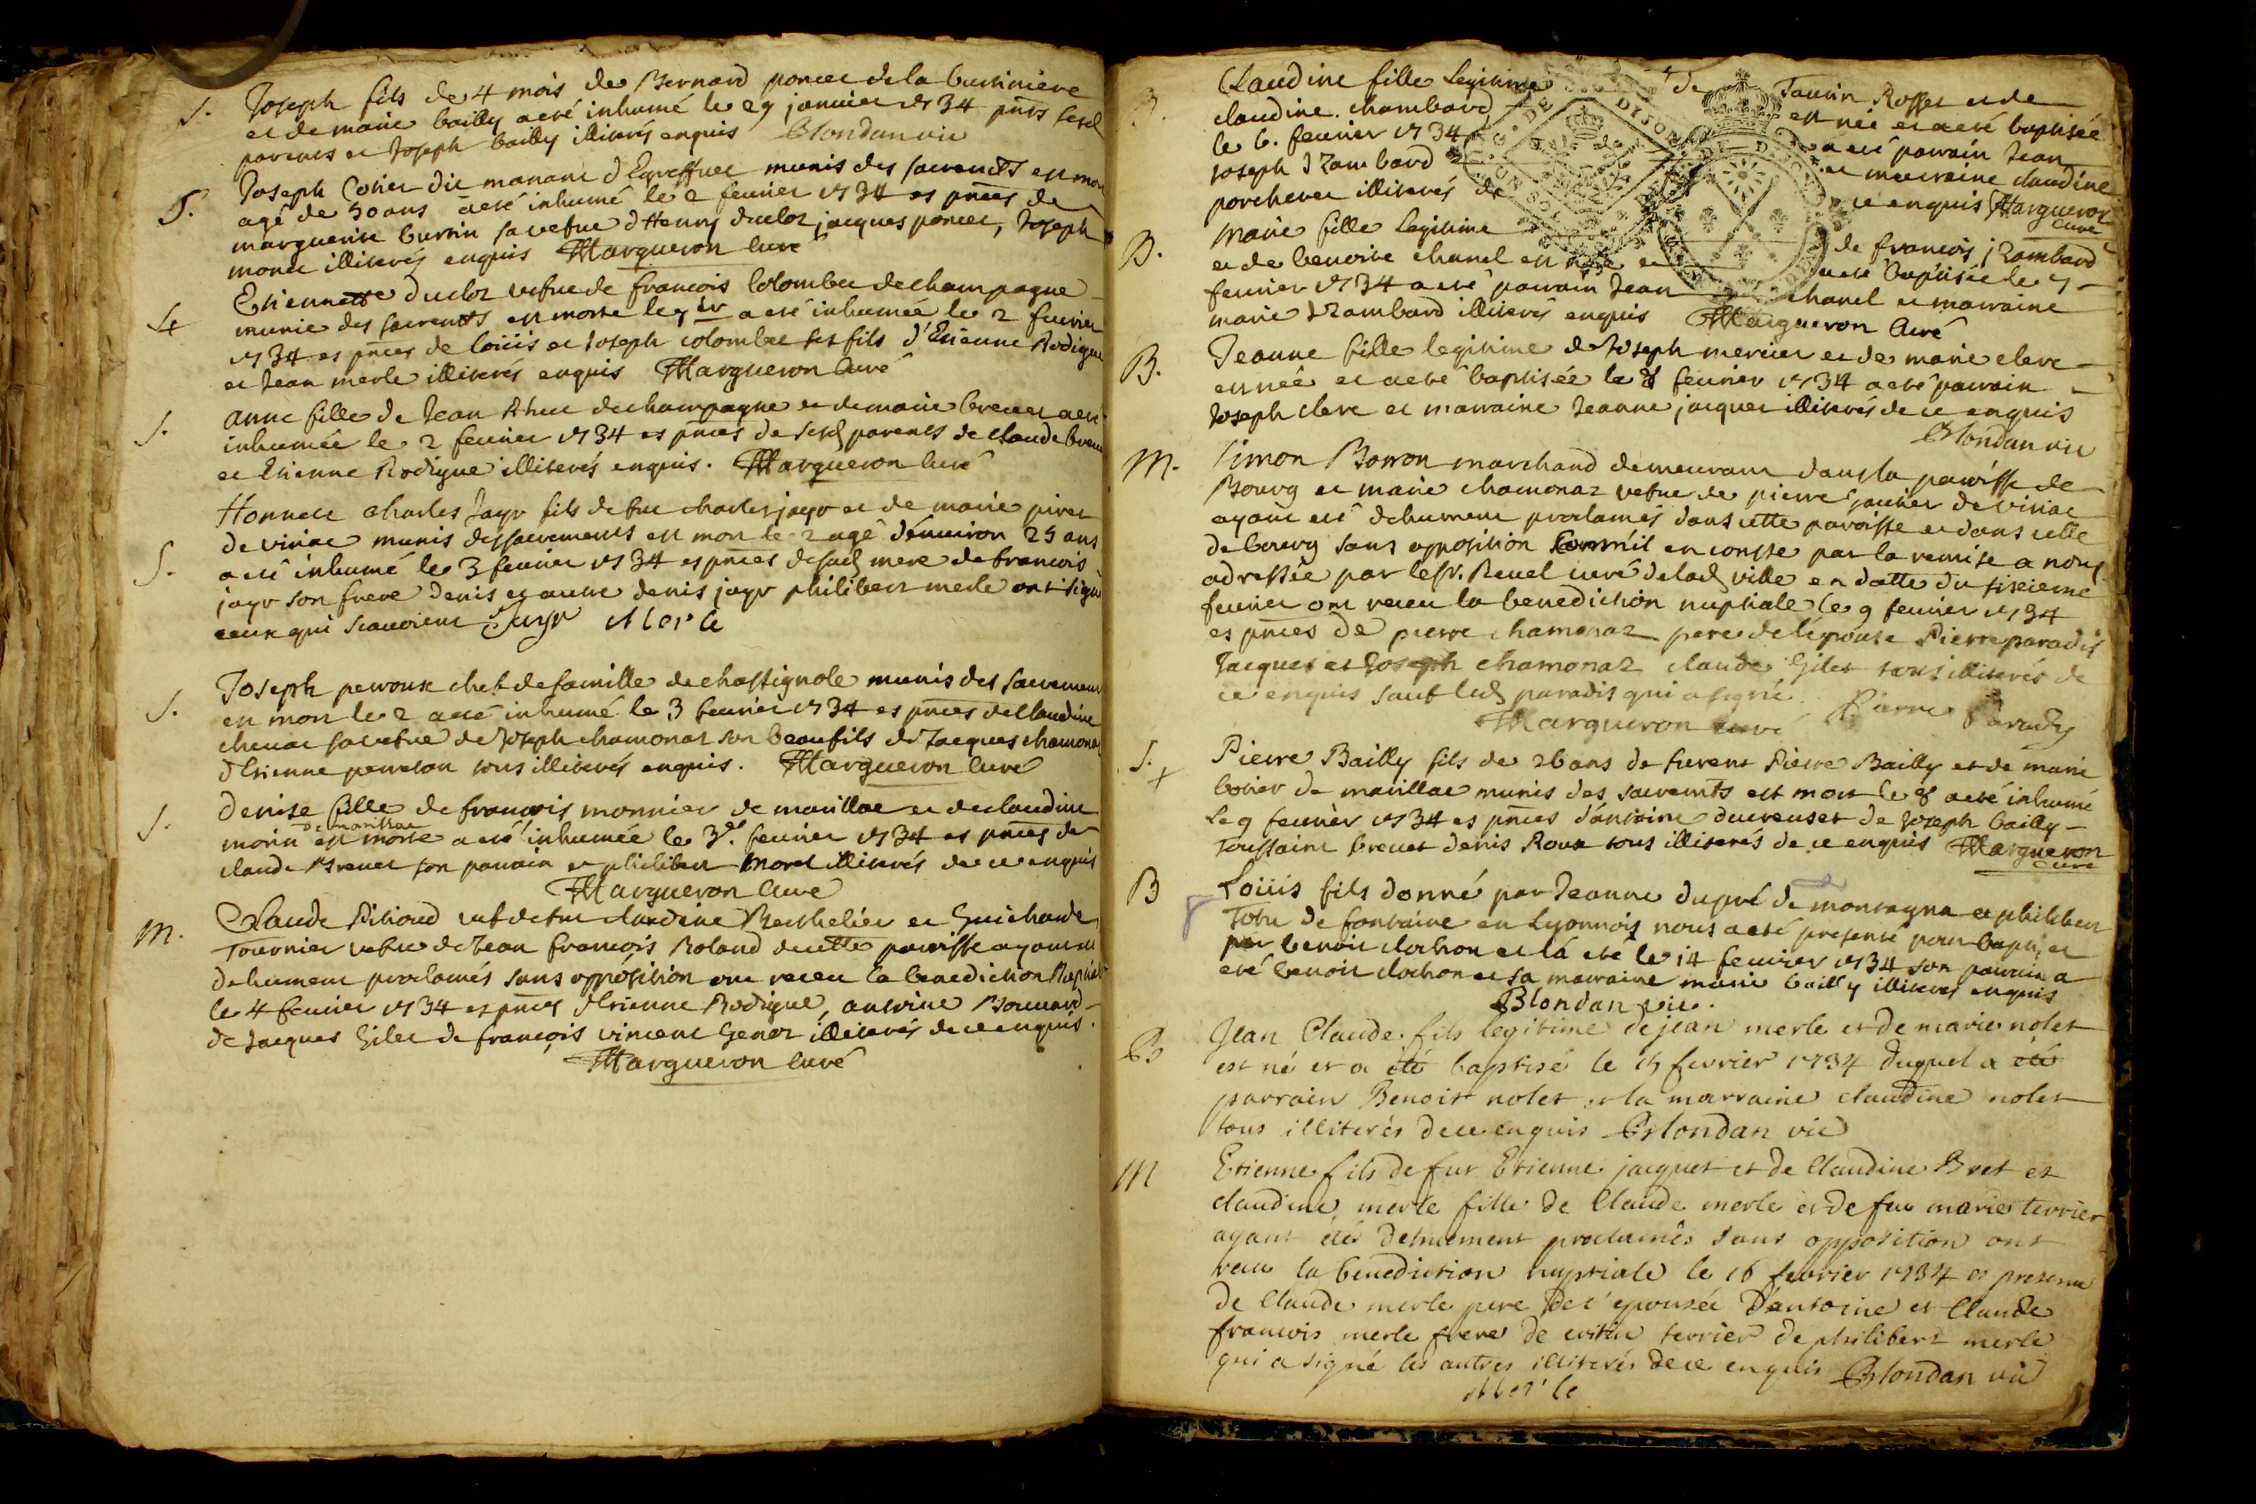 S. Joseph fils de 4 mois de Bernard poncet de la bussiniere
et de marie bailly a eté inhumé le 29 janvier 1734 pnts sesd
parents et Joseph bailly illiterés enquis Blondan vic
S. Joseph Cotier dit manant d'Egreffuel munis des sacremts est mort
agé de 50 ans a eté inhumé le 2 fevrier 1734 es pnces de
marguerite burtin sa vefve d'Henry ducloz jacques poncet, Joseph
illiterés enquis Margueron Curé
Etiennette Ducloz vefve de francois Colombet de champagne
munie des sacremts est morte le 1er a eté inhumée le 2 fevrier
1734 es pnces de loüis et Joseph colombet ses fils d'Etienne Rodigue
et Jean merle illiterés enquis Margueron Curé
S. anne fille de Jean de champagne et de marie brevet a eté
inhumée le 2 fevrier 1734 es pnces de sesd parents de claude brevet
et Etienne Rodigue illiterés enquis. Margueron Curé
S. Honnete charles Jayr fils de feu charles jayr et de marie pivet
de viriac munis des sacrements est mort le 2 agé d'environ 25 ans
a eté inhumé le 3 fevrier 1734 es pnces de sad mere de francois
jayr son frere denis et autre denis jayr philibert merle ont signé
ceux qui scavoient Jayr Merle
S. Joseph perroux chef de famille de chassignole munis des sacrements
est mort le 2 a eté inhumé le 3 fevrier 1734 es pnces de claudine
chevat sa vefve de Joseph chamonat son beaufils de Jacques chamonat
d'Etienne tous illiterés enquis. Margueron Curé
S. Denise fille de francois monnier de marillac et de claudine
morin de marillac est morte a eté inhumée le 3e. fevrier 1734 es pnces de
claude Brevet son parrain et philibert morel illiterés de ce enquis
Margueron Curé
M. Claude Pithoud vef de feu claudine Berthelier et Guicharde
Tournier vefve de Jean francois Roland de cette paroisse ayant eté
dehument proclamés sans opposition ont receu la benediction Nuptiale
le 4 fevrier 1734 es pnces d'Etienne Rodigue, antoine Bouvard
de Jacques Gilet de françois vincent Genot illiterés de ce enquis.
Margueron Curé
B. Claudine fille legitime de Taurin Rosset et de
claudine chambard est née et a eté baptisée
le 6. fevrier 1734 a eté parrain Jean
Joseph Jzambard et marraine claudine
porcheret illiterés de ce enquis Margueron
Curé
B. Marie fille legitime de francois jzambard
et de benoite chanel est née et a eté baptisée le 7
fevrier 1734 a eté parrain Jean chanel et marraine
marie Jzambard illiterés enquis Margueron Curé
B. Jeanne fille legitime de Joseph mercier et de marie clere
est née et a eté baptisée le 8 fevrier 1734 a eté parrain
Joseph clere et marraine Jeanne jacquet illiterés de ce enquis
Blondan vic
M. Simon Borron marchand demeurant dans la paroisse de
Bourg et marie chamonaz vefve de pierre jantier de viriac
ayant eté dehument proclamés dans cette paroisse et dans celle
de bourg sans opposition comm'il en conste par la remise a nous
adressée par le Sr. Revel curé de lad ville en datte du sixieme
fevrier ont receu la benediction nuptiale le 9 fevrier 1734
es pnces de pierre chamonaz pere de l'epouse Pierre paradis
Jacques et Joseph chamonaz claude Gilet tous illiterés de
ce enquis sauf led paradis qui a signé Pierre Paradis
Margueron curé
S. Pierre Bailly fils de 26 ans de furent Pierre Bailly et de marie
cotier de marillac munis des sacremts est mort le 8 a eté inhumé
le 9 fevrier 1734 es pnces d'antoine ducreuset de Joseph bailly
Toussaint brevet denis Roux tous illiterés de ce enquis Margueron
Curé
B Loüis fils donné par Jeanne dupré de montagna et philibert
de fontaine en Lyonnois nous a eté presenté pour baptiser
par benoit clochon et l'a eté le 14 fevrier 1734 son parrain a
eté benoit clochon et sa marraine marie bailly illiterés enquis
Blondan vic.
B Jean Claude fils legitime de jean merle et de marie nolet
est né et a été baptisé le 15 fevrier 1734 duquel a été
parrain Benoit nolet et la marraine claudine nolet
tous illiterés de ce enquis Blondan vic
M Etienne fils de fut Etienne jacquet et de Claudine Bret et
claudine merle fille de Claude merle et de feu marie terrier
ayant étés dehuement proclamés sans opposition ont
receu la benediction nuptiale le 16 fevrier 1734 es presence
de Claude merle pere de l'epousée d'antoine et Claude
francois merle frere de terrier de philibert merle
qui a signé les autres illiterés de ce enquis Blondan vic
Merle